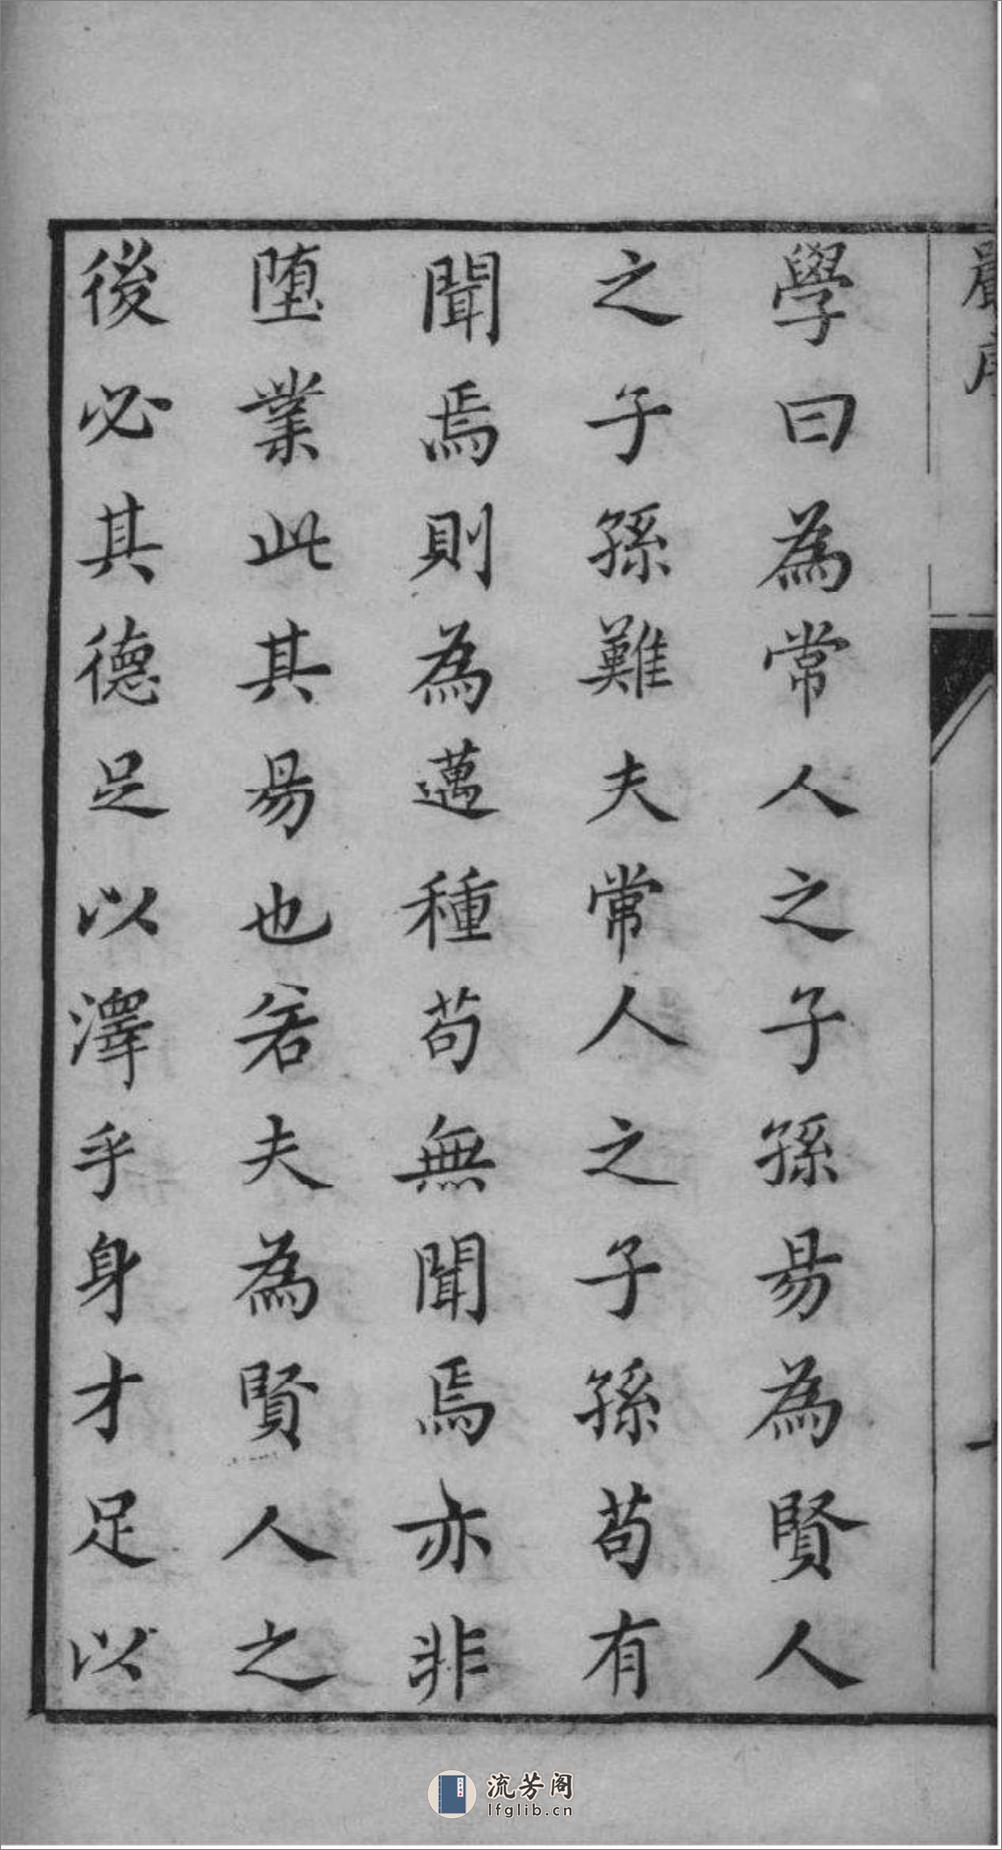 學曰為常人之子孫易為賢人
之子孫難夫常人之子孫苟有
聞焉則為邁種苟無聞焉亦非
墮業此其易也若夫為賢人之
後必其德足以澤乎身才足以
流芳阁
lfglib.cn